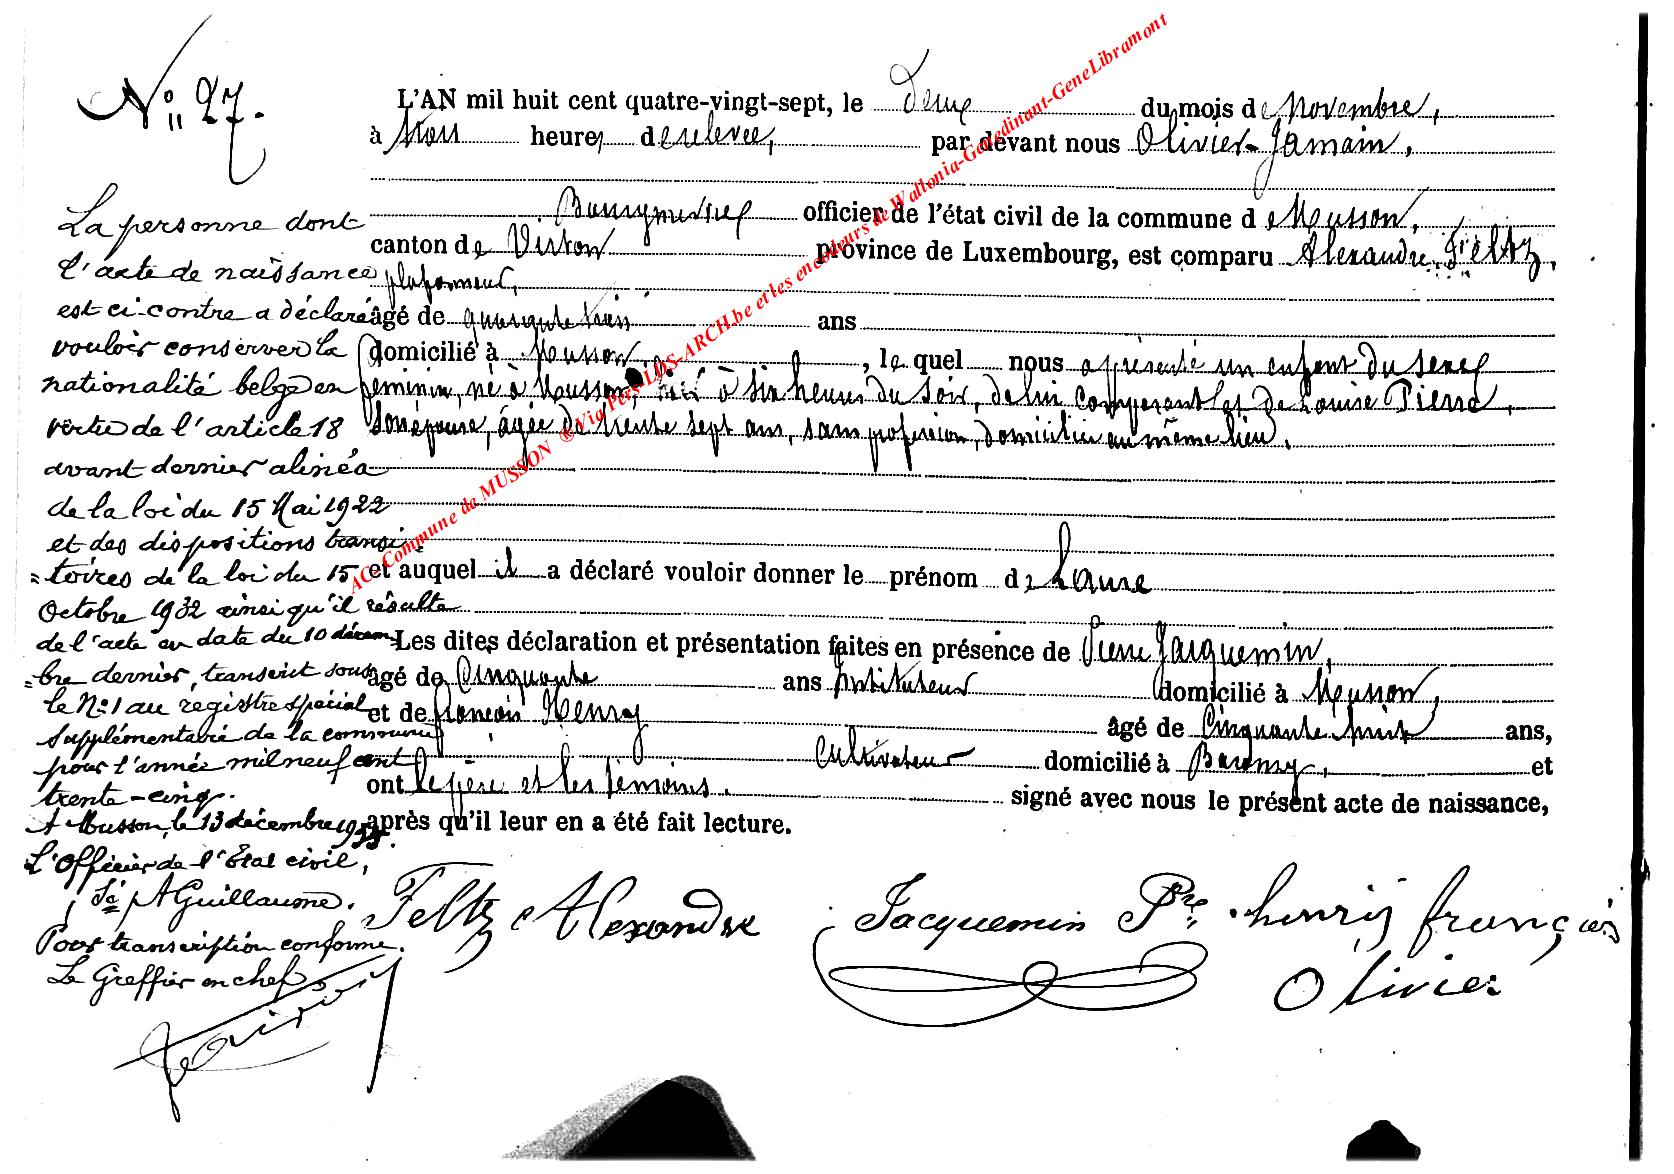 N° 27.
L'AN mil huit cent quatre-vingt-sept, le deux du mois de Novembre,
à trois heures de relevée, par devant nous Olivier Jamain,
Bourgmestre officier de l'état civil de la commune de Musson,
canton de Virton province de Luxembourg, est comparu Alexandre Feltz,
plafonneur,
âgé de quarante trois ans
domicilié à Musson, le quel nous a présenté un enfant du sexe
féminin, né à Musson, à six heures du soir, de lui comparant et de Louise Pierre,
son épouse, âgée de trente sept ans, sans profession, domiciliée au même lieu.
et auquel il a déclaré vouloir donner le prénom de Laure
Les dites déclaration et présentation faites en présence de Pierre Jacquemin,
âgé de Cinquante ans Instituteur domicilié à Musson,
et de françois Henry âgé de Cinquante huit ans,
Cultivateur domicilié à Baranzy, et
ont le père et les témoins. signé avec nous le présent acte de naissance,
après qu'il leur en a été fait lecture.
Feltz Alexandre Jacquemin Pre henry françois
Olivier
La personne dont
l'acte de naissance
est ci-contre a déclaré
vouloir conserver la
nationalité belge en
vertu de l'article 18
avant dernier alinéa
de la loi du 15 Mai 1922
et des dispositions transi
=toires de la loi du 15
Octobre 1932 ainsi qu'il résulte
de l'acte en date du 10 décem
=bre dernier, transcrit sous
le N° 1 au registre spécial
supplémentaire de la commune
pour l'année mil neuf cent
trente-cinq.
A Musson, le 13 décembre 1935.
L'Officier de l'État civil,
Sé A Guillaume.
Pour transcription conforme.
Le Greffier en chef
AC- Commune de MUSSON ® Via Pers-LDS-ARCH.be et les encodeurs de Wallonia-Genedinant-GeneLibramont